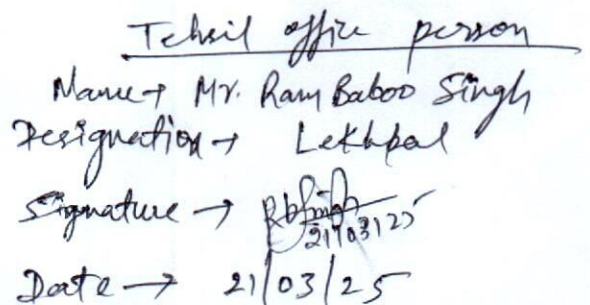 Tehsil office person
Name → Mr. Ram Baboo Singh
Designation → Lekhpal
Signature → RbSingh
21/03/25
Date → 21/03/25